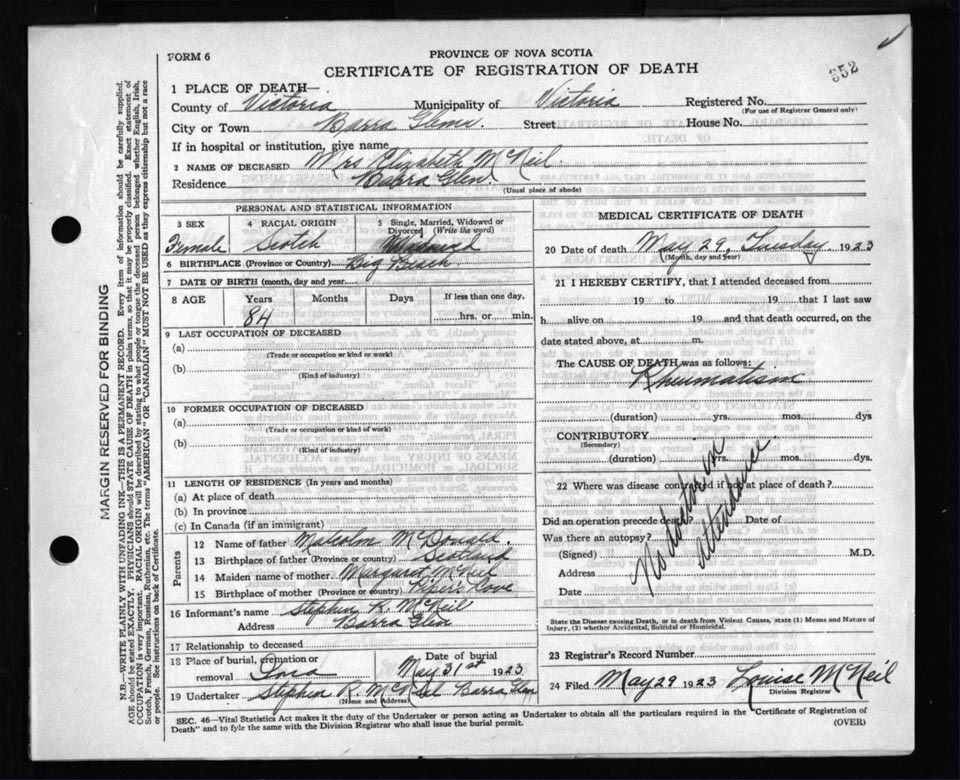 FORM 6
PROVINCE OF NOVA SCOTIA
352
CERTIFICATE OF REGISTRATION OF DEATH
1 PLACE OF DEATH—
County of Victoria Municipality of Victoria Registered No.
(For use of Registrar General only)
City or Town Barra Glen. Street House No.
If in hospital or institution, give name
2 NAME OF DECEASED Mrs Elizabeth McNeil.
Residence Barra Glen
(Usual place of abode)
PERSONAL AND STATISTICAL INFORMATION
3 SEX 4 RACIAL ORIGIN 5 Single, Married, Widowed or Divorced (Write the word)
Female Scotch Widowed
6 BIRTHPLACE (Province or Country) Big Beach
7 DATE OF BIRTH (month, day and year)
8 AGE Years Months Days If less than one day,
84 hrs. or min.
9 LAST OCCUPATION OF DECEASED
(a)
(Trade or occupation or kind or work)
(b)
(Kind of industry)
10 FORMER OCCUPATION OF DECEASED
(a)
(Trade or occupation or kind or work)
(b)
(Kind of industry)
11 LENGTH OF RESIDENCE (In years and months)
(a) At place of death
(b) In province
(c) In Canada (if an immigrant)
Parents
12 Name of father Malcolm McDonald.
13 Birthplace of father (Province or country) Scotland
14 Maiden name of mother Margaret McNeil
15 Birthplace of mother (Province or country) Piper's Cove
16 Informant's name Stephen R. McNeil
Address Barra Glen
17 Relationship to deceased
18 Place of burial, cremation or removal Date of burial
May 31st 1923
19 Undertaker Stephen R. McNeil Barra Glen
(Name and Address)
MEDICAL CERTIFICATE OF DEATH
20 Date of death May 29, Tuesday 1923
(Month, day and year)
21 I HEREBY CERTIFY, that I attended deceased from
19 to 19 that I last saw
h alive on 19 and that death occurred, on the
date stated above, at m.
The CAUSE OF DEATH was as follows:
Rheumatism
(duration) yrs. mos. dys
CONTRIBUTORY
(Secondary)
(duration) yrs. mos. dys.
22 Where was disease contracted if not at place of death?
Did an operation precede death? Date of
Was there an autopsy?
(Signed) M.D.
Address
Date
No doctor in attendance
State the Disease causing Death, or in death from Violent Causes, state (1) Means and Nature of
Injury, (2) whether Accidental, Suicidal or Homicidal.
23 Registrar's Record Number
24 Filed May 29 1923 Louise McNeil
Division Registrar
SEC. 46—Vital Statistics Act makes it the duty of the Undertaker or person acting as Undertaker to obtain all the particulars required in the "Certificate of Registration of
Death" and to fyle the same with the Division Registrar who shall issue the burial permit. (OVER)
MARGIN RESERVED FOR BINDING
N.B.—WRITE PLAINLY WITH UNFADING INK—THIS IS A PERMANENT RECORD. Every item of information should be carefully supplied.
AGE should be stated EXACTLY. PHYSICIANS should STATE CAUSE OF DEATH in plain terms, so that it may be properly classified. Exact statement of
OCCUPATION is very important. RACIAL ORIGIN will be described by stating to what people or tongue the deceased person belonged whether English, Irish,
Scotch, French, German, Russian, Ruthenian, etc. The terms "AMERICAN" OR "CANADIAN" MUST NOT BE USED as they express citizenship but not a race
or people. See instructions on back of Certificate.